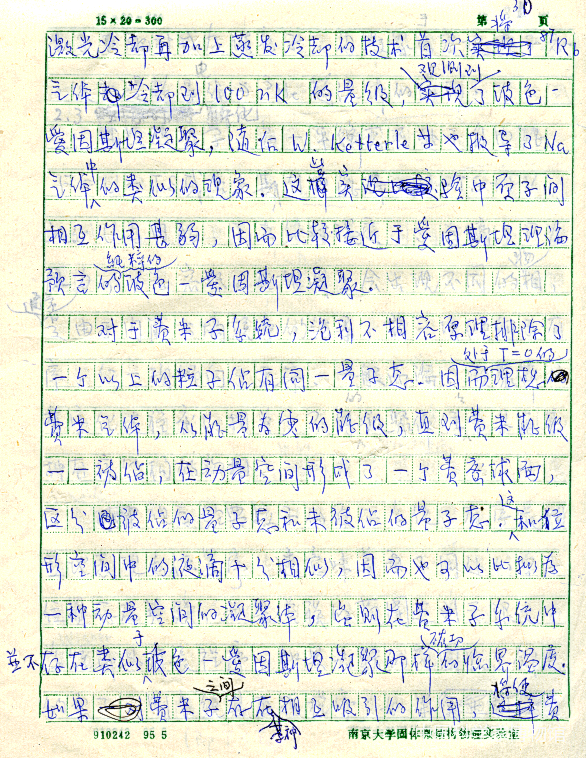 15×20=300 第 30 页
激光冷却再加上蒸发冷却的技术首次将 87Rb
气体冷却到 100 nK 的量级, 观测到了玻色一
爱因斯坦凝聚, 随后 W. Ketterle 等也报导了 Na
气体中的类似的现象. 这些实验中原子间
相互作用甚弱, 因而比较接近于爱因斯坦理论
预言的纯粹的玻色一爱因斯坦凝聚.
对于费米子系统, 泡利不相容原理排除了
一个以上的粒子占有同一量子态. 因而处于 T=0 的理想
费米气体, 从能量为零的能级, 直到费米能级
一一被占, 在动量空间形成了一个费米球面,
区分被占的量子态和未被占的量子态. 这和位
形空间中的液滴十分相似, 因而也可以比拟为
一种动量空间的凝聚体, 但在费米子系统中
并不存在类似于玻色一爱因斯坦凝聚那样的临界温度.
如果费米子之间存在某种相互吸引的作用, 将使费
910242 95 5 南京大学固体微结构物理实验室